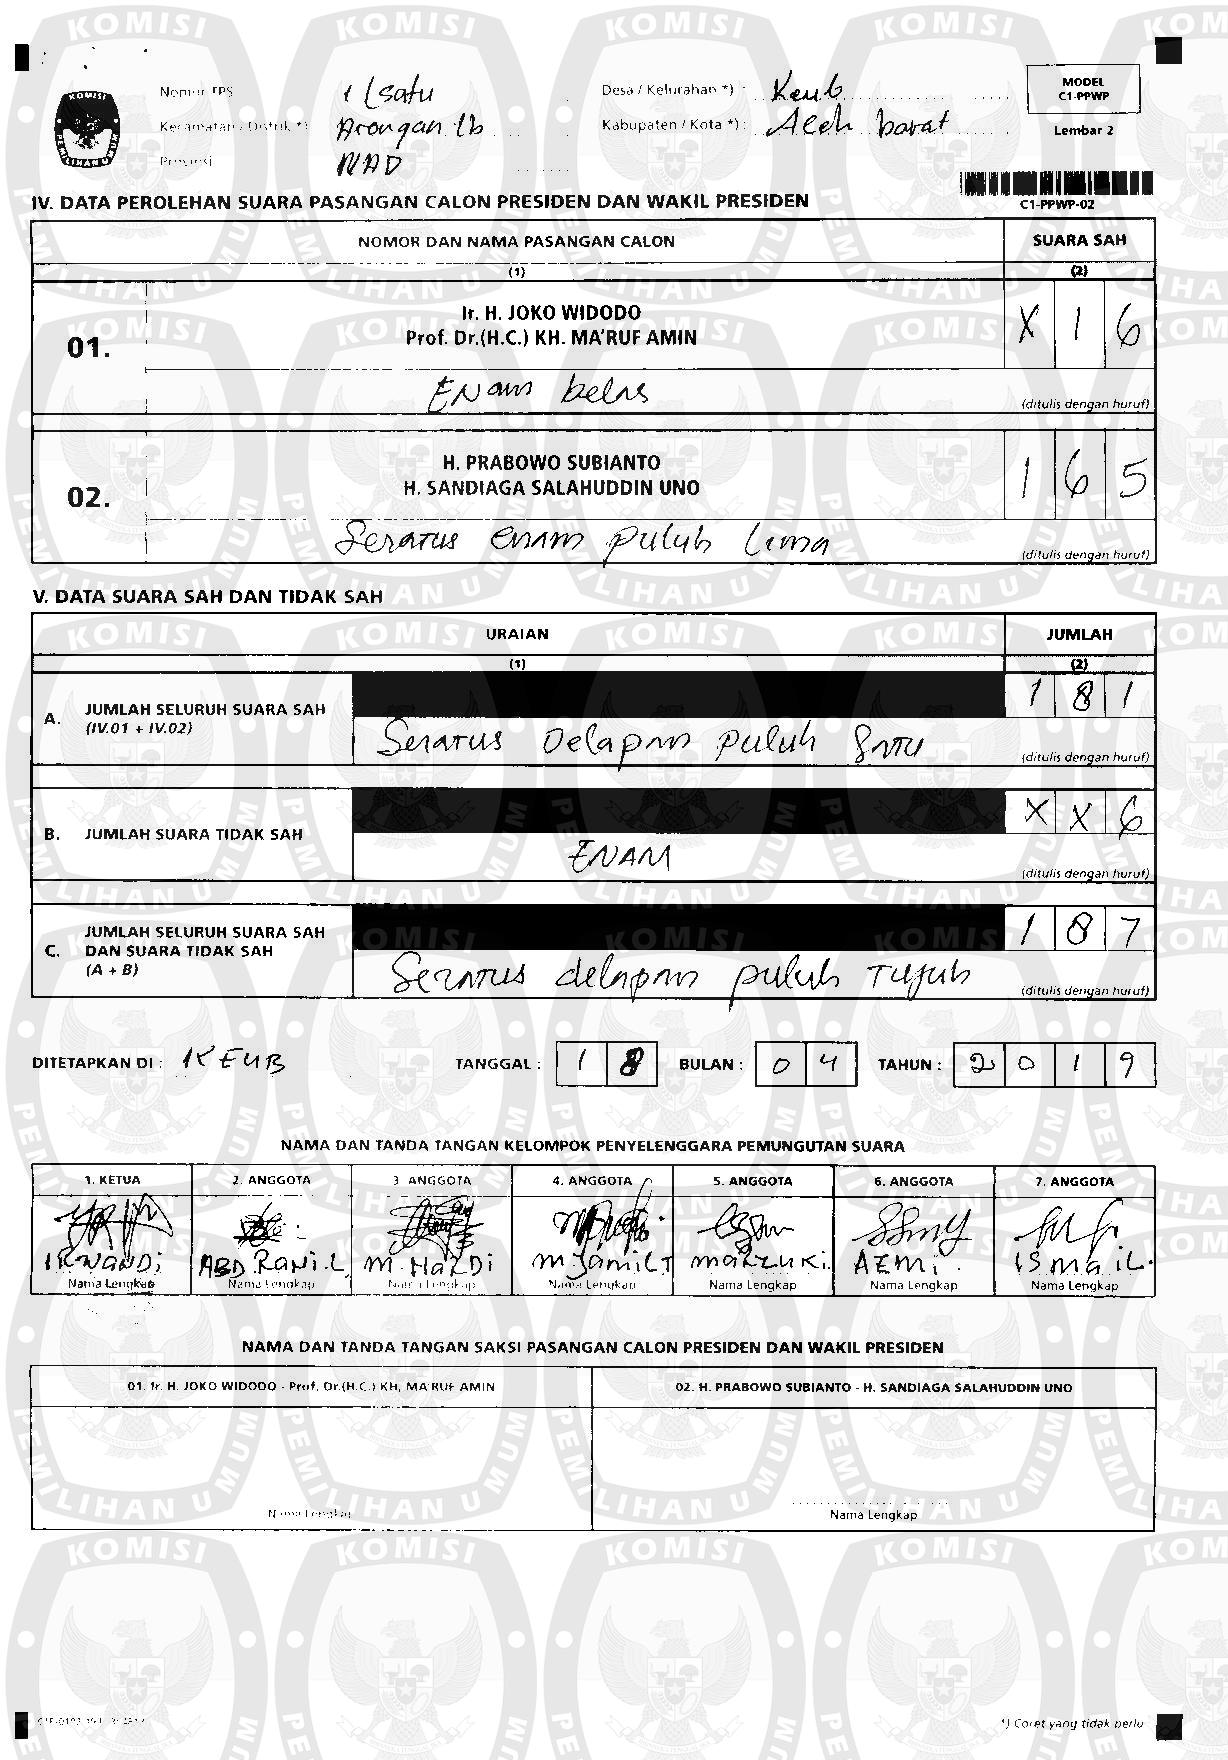 Nomor TPS : 1 (satu
Desa / Kelurahan *) : Keub
MODEL
C1-PPWP
Kecamatan / Distrik *) : Arongan lb
Kabupaten / Kota *) : Aceh barat
Lembar 2
Provinsi : NAD
C1-PPWP-02
IV. DATA PEROLEHAN SUARA PASANGAN CALON PRESIDEN DAN WAKIL PRESIDEN
NOMOR DAN NAMA PASANGAN CALON SUARA SAH
(1) (2)
01. Ir. H. JOKO WIDODO
Prof. Dr.(H.C.) KH. MA'RUF AMIN X 1 6
ENam belas
(ditulis dengan huruf)
02. H. PRABOWO SUBIANTO
H. SANDIAGA SALAHUDDIN UNO 1 6 5
Seratus enam puluh lima
(ditulis dengan huruf)
V. DATA SUARA SAH DAN TIDAK SAH
URAIAN JUMLAH
(1) (2)
A. JUMLAH SELURUH SUARA SAH
(IV.01 + IV.02) 1 8 1
Seratus Delapan puluh satu
(ditulis dengan huruf)
B. JUMLAH SUARA TIDAK SAH X X 6
ENAM
(ditulis dengan huruf)
C. JUMLAH SELURUH SUARA SAH
DAN SUARA TIDAK SAH
(A + B) 1 8 7
Seratus delapan puluh Tujuh
(ditulis dengan huruf)
DITETAPKAN DI : KEUB TANGGAL : 1 8 BULAN : 0 4 TAHUN : 2 0 1 9
NAMA DAN TANDA TANGAN KELOMPOK PENYELENGGARA PEMUNGUTAN SUARA
1. KETUA 2. ANGGOTA 3. ANGGOTA 4. ANGGOTA 5. ANGGOTA 6. ANGGOTA 7. ANGGOTA
IRWANDi ABD RANi.L M.HARDi M JamiLT maRZUKi AZMi. iSmaiL.
Nama Lengkap Nama Lengkap Nama Lengkap Nama Lengkap Nama Lengkap Nama Lengkap Nama Lengkap
NAMA DAN TANDA TANGAN SAKSI PASANGAN CALON PRESIDEN DAN WAKIL PRESIDEN
01. Ir. H. JOKO WIDODO - Prof. Dr.(H.C.) KH. MA'RUF AMIN 02. H. PRABOWO SUBIANTO - H. SANDIAGA SALAHUDDIN UNO
Nama Lengkap Nama Lengkap
*) Coret yang tidak perlu